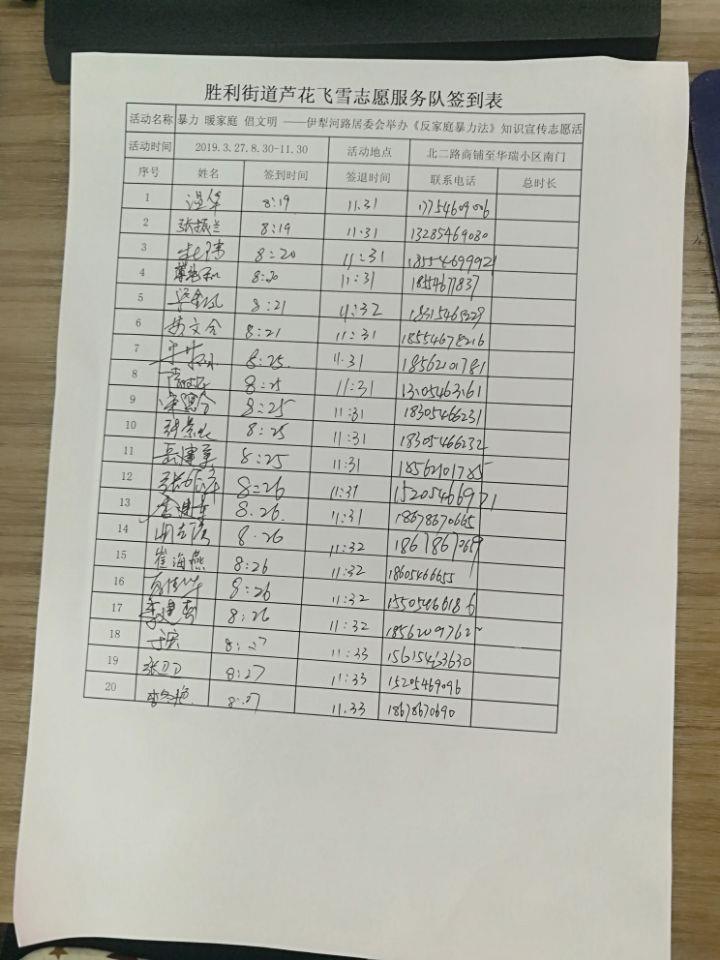 胜利街道芦花飞雪志愿服务队签到表
活动名称 暴力 暖家庭 倡文明 ——伊犁河路居委会举办《反家庭暴力法》知识宣传志愿活
活动时间 2019.3.27.8.30-11.30 活动地点 北二路商铺至华瑞小区南门
序号 姓名 签到时间 签退时间 联系电话 总时长
1 温华 8:19 11.31 17754609006
2 张振兰 8:19 11.31 13285469080
3 杜伟 8:20 11:31 18554699921
4 8:20 11:31 1855467837
5 8:21 11:32
6 8:21 11:31 18554678216
7 8:25. 11.31 1856210781
8 8:25 11:31 13105463161
9 8:25 11:31 18305466231
10 8:25 11:31 18305466232
11 岳建军 8:25 11:31 18562101785
12 8:26 11:31 15205466971
13 8.26. 11:31 18678670665
14 8.26 11:32
15 崔海燕 8:26 11:32 18605466655
16 8:26 11:32 15505466186
17 李建 8:26 11:32 18562099762
18 于滨 11:33 15615463630
19 张刀刀 8:27 11:33 15205469096
20 8:27 11.33 18678670690